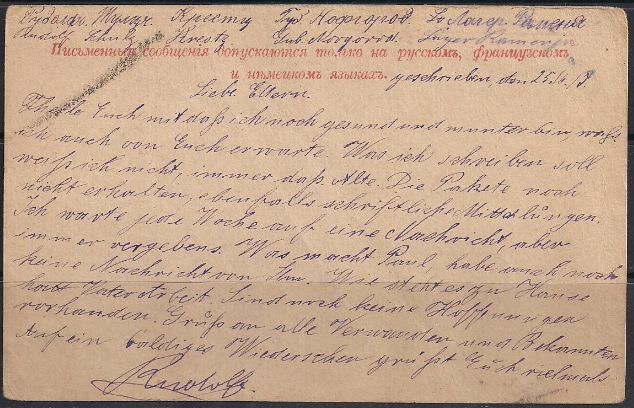 Рудольф. Шульц. Крестцы Губ Новгород. Лагер Раменья
Rudolf Schulz Krestz Gub. Nowgorod. Lager Ramenja
Письменныя сообщенія допускаются только на русскомъ, французскомъ
и нѣмецкомъ языкахъ. geschrieben, den 25.
Liebe Eltern.
Theile Euch mit daß ich noch gesund und munter bin, was
ich auch von Euch erwarte. Was ich schreiben soll
weiß ich nicht, immer daß Alte. Die Pakete noch
nicht erhalten, ebenfalls schriftliche Mitteilungen.
Ich warte jede Woche auf eine Nachricht, aber
immer vergebens. Was macht Paul, habe auch noch
keine Nachricht von Ihm. Wie steht es zu Hause
Vater arbeit. Sind noch keine Hoffnungen
vorhanden. Gruß an alle Verwanden und Bekannten
Auf ein baldiges Wiedersehen grüßt Euch vielmals
Rudolf.